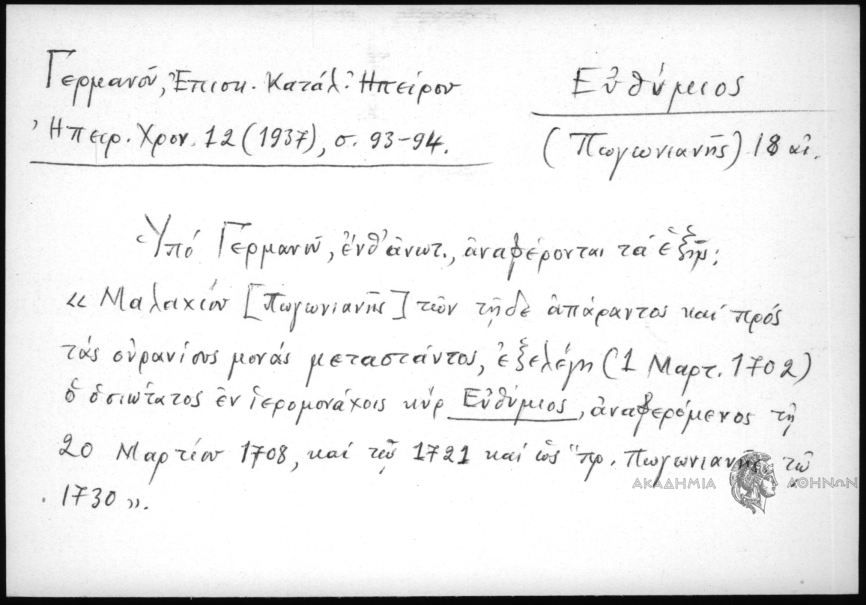 Γερμανοῦ, Ἐπισκ. Κατάλ. Ἠπείρου
Ἠπειρ. Χρον. 12 (1937), σ. 93-94.
Εὐθύμιος
(Πωγωνιανῆς) 18 αἰ.
Ὑπό Γερμανοῦ, ἐνθ' ἀνωτ., ἀναφέρονται τά ἑξῆς:
« Μαλαχίου [Πωγωνιανῆς] τῶν τῇδε ἀπάραντος καί πρός
τάς οὐρανίους μονάς μεταστάντος, ἐξελέγη (1 Μαρτ. 1702)
ὁ ὁσιώτατος ἐν ἱερομονάχοις κύρ Εὐθύμιος, ἀναφερόμενος τῇ
20 Μαρτίου 1708, καί τῷ 1721 καί ὡς "πρ. Πωγωνιανῆς τῷ
1730 ».
ΑΚΑΔΗΜΙΑ ΑΘΗΝΩΝ